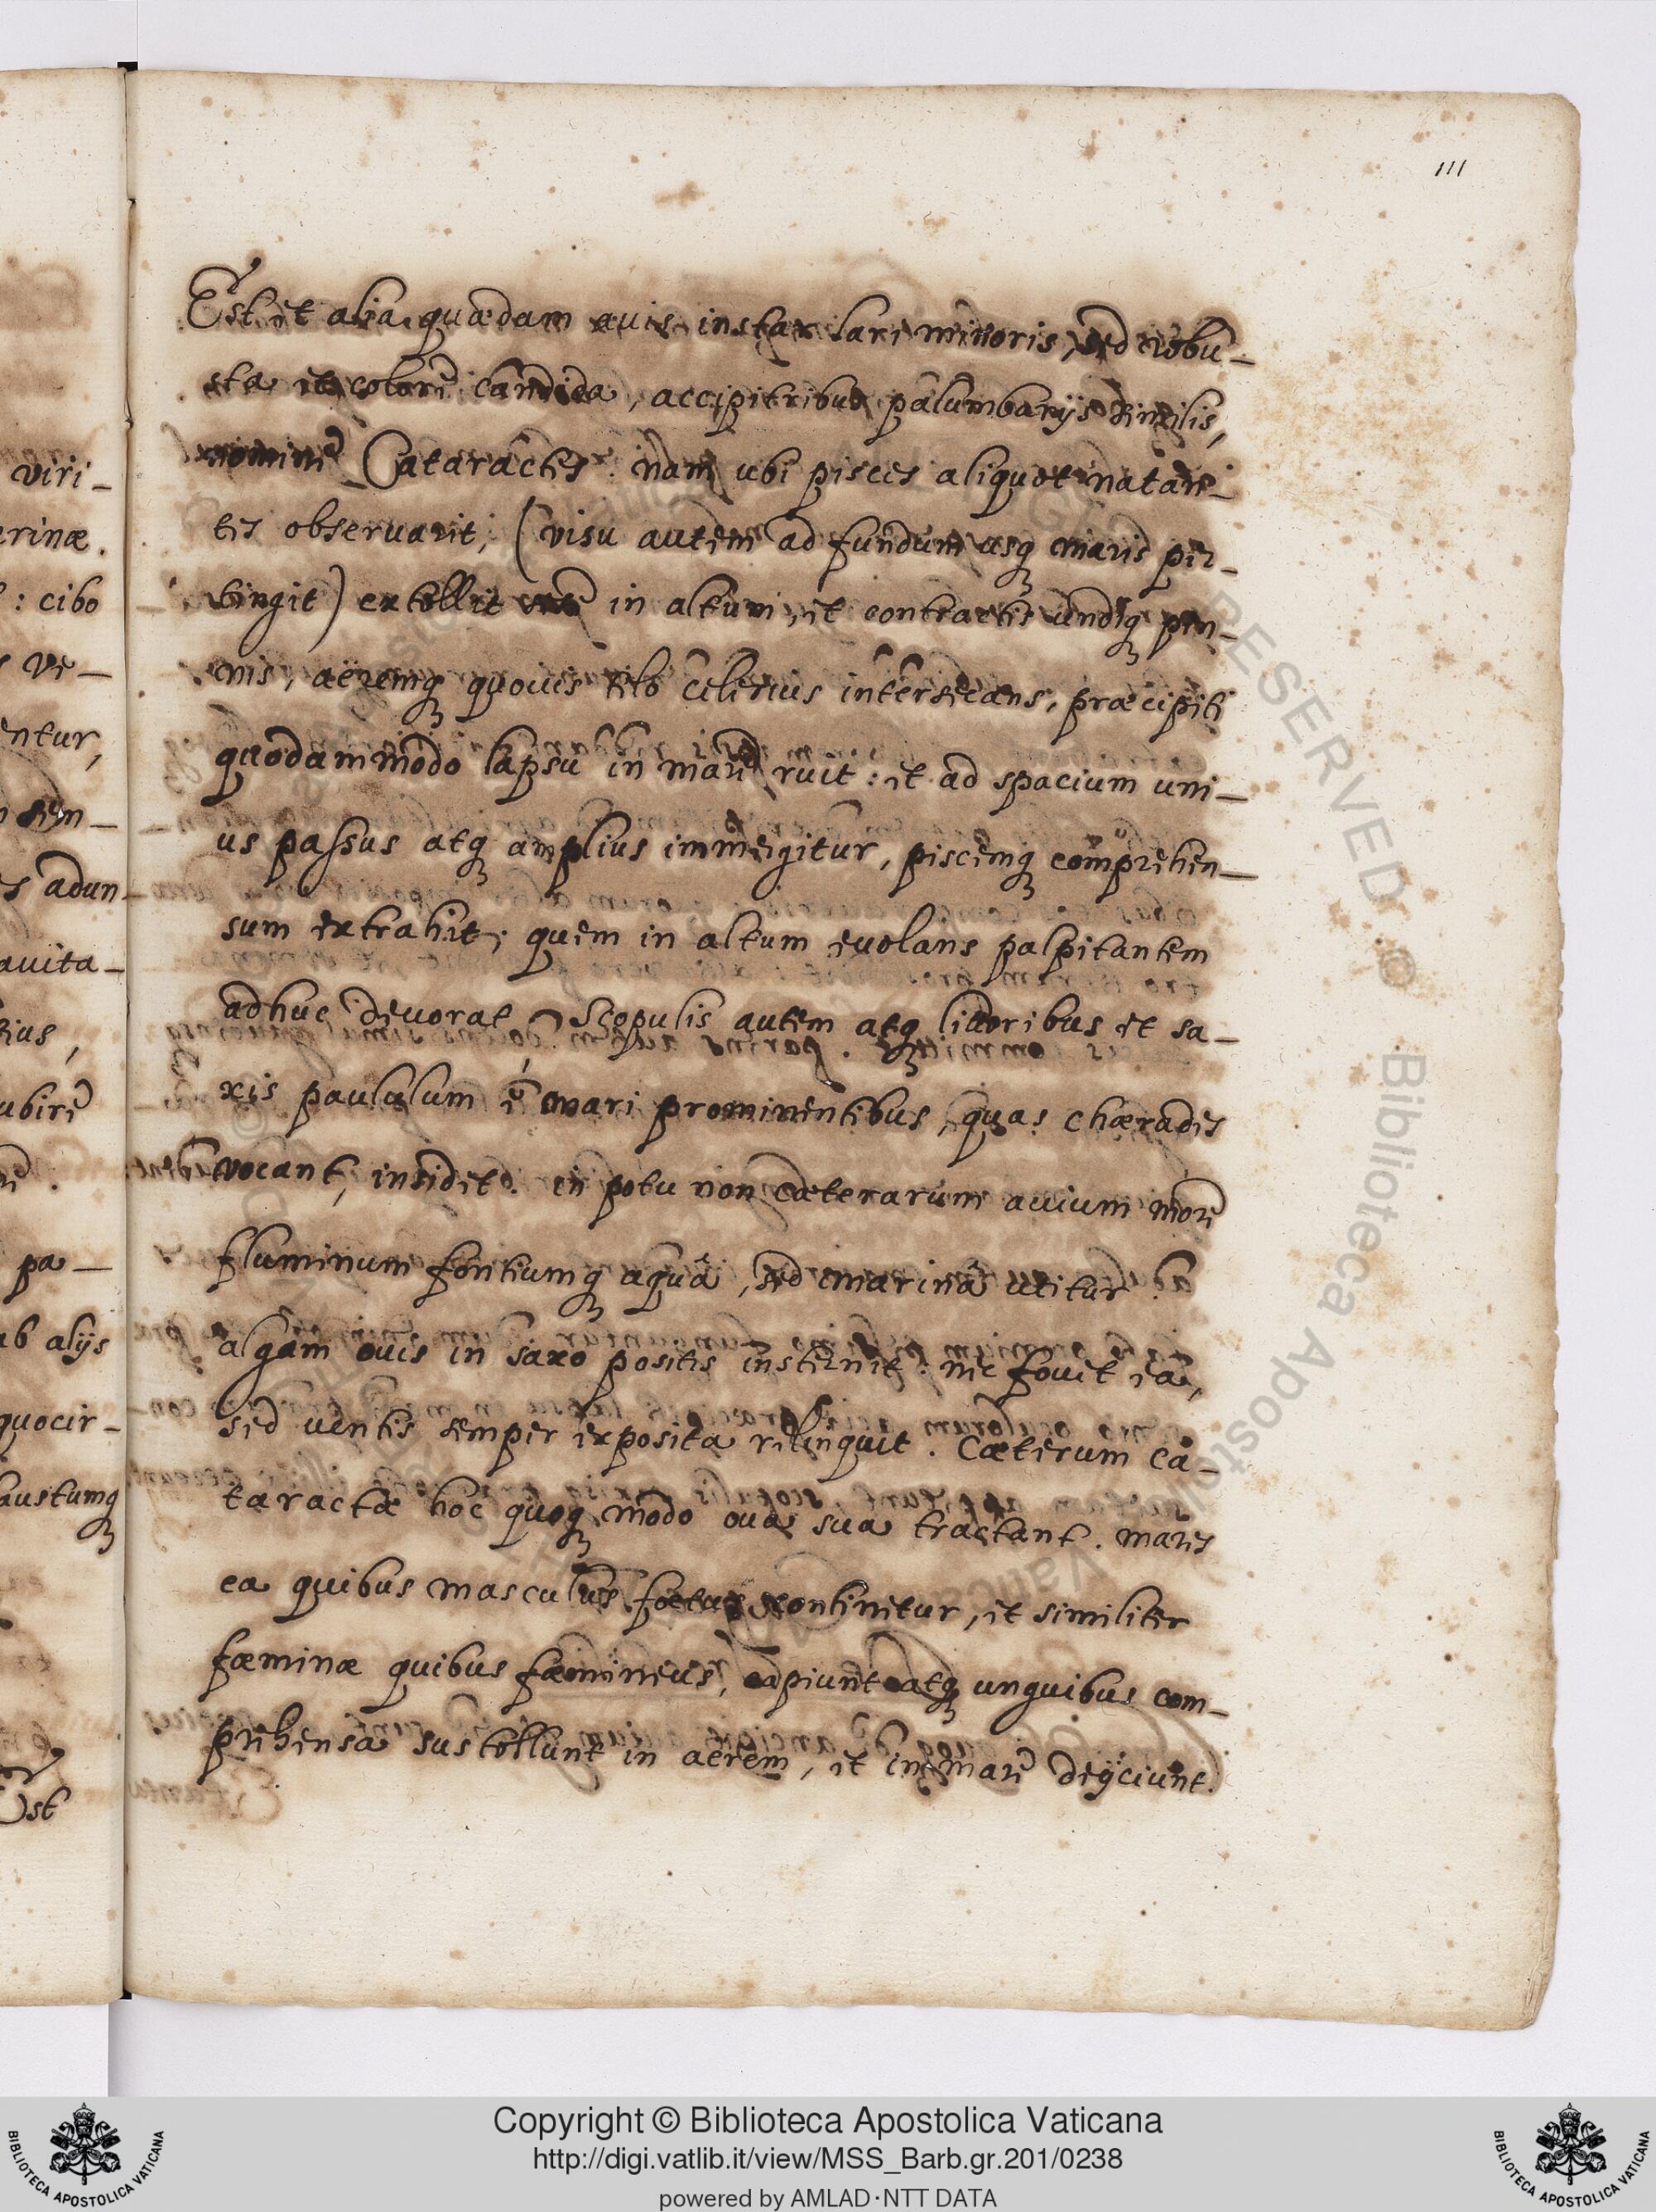 111
Est et alia quædam auis instar lari minoris, sed robu-
sta et colore candida, accipitribus palumbarijs similis,
nomine Cataractes: nam ubi pisces aliquot natan-
tes obseruarit, (visu autem ad fundum usq maris per-
tingit) extollit se in altum, et contractis undiq pen-
nis, aëremq quouis telo celerius intersecans, præcipiti
quodammodo lapsu in mare ruit: et ad spacium uni-
us passus atq amplius immergitur, piscemq comprehen-
sum extrahit; quem in altum euolans palpitantem
adhuc deuorat. Scopulis autem atq litoribus et sa-
xis paululum è mari prominentibus, quas chærades
vocant, insidet. in potu non cæterarum auium more
fluminum fontiumq aquâ, sed marinâ utitur.
algam ouis in saxo positis insternit: nec fouet ea,
sed ventis semper exposita relinquit. Cæterum ca-
taractæ hoc quoq modo oua sua tractant. mares
ea quibus masculus foetus continetur, et similiter
fæminæ quibus fæmineus, capiunt atq unguibus com-
prehensa sustollunt in aërem, et in mare deijciunt.
viri-
rinæ.
: cibo
ve-
entur,
adun-
auita-
ubire
pa-
ab alijs
quocir-
austumq
Est
RESERVED © Biblioteca Apostolica Vaticana
Copyright © Biblioteca Apostolica Vaticana
http://digi.vatlib.it/view/MSS_Barb.gr.201/0238
powered by AMLAD·NTT DATA
BIBLIOTECA APOSTOLICA VATICANA
BIBLIOTECA APOSTOLICA VATICANA